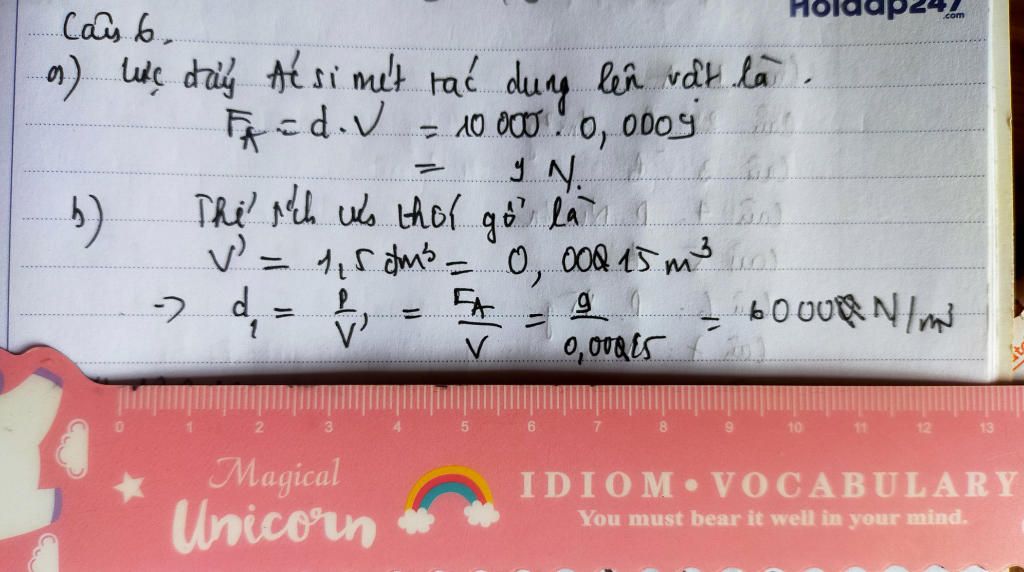 Hoidap247
.com
Câu 6.
a) lực đẩy Ác si mét tác dung lên vật là.
F_A = d.V = 10 000 . 0,0009
= 9 N.
b) Thể tích của thỏi gỗ là
V' = 1,5 dm³ = 0,0015 m³
-> d₁ = P/V' = F_A/V = 9/0,0015 = 6000 N/m³
0 1 2 3 4 5 6 7 8 9 10 11 12 13
Magical
Unicorn
IDIOM • VOCABULARY
You must bear it well in your mind.